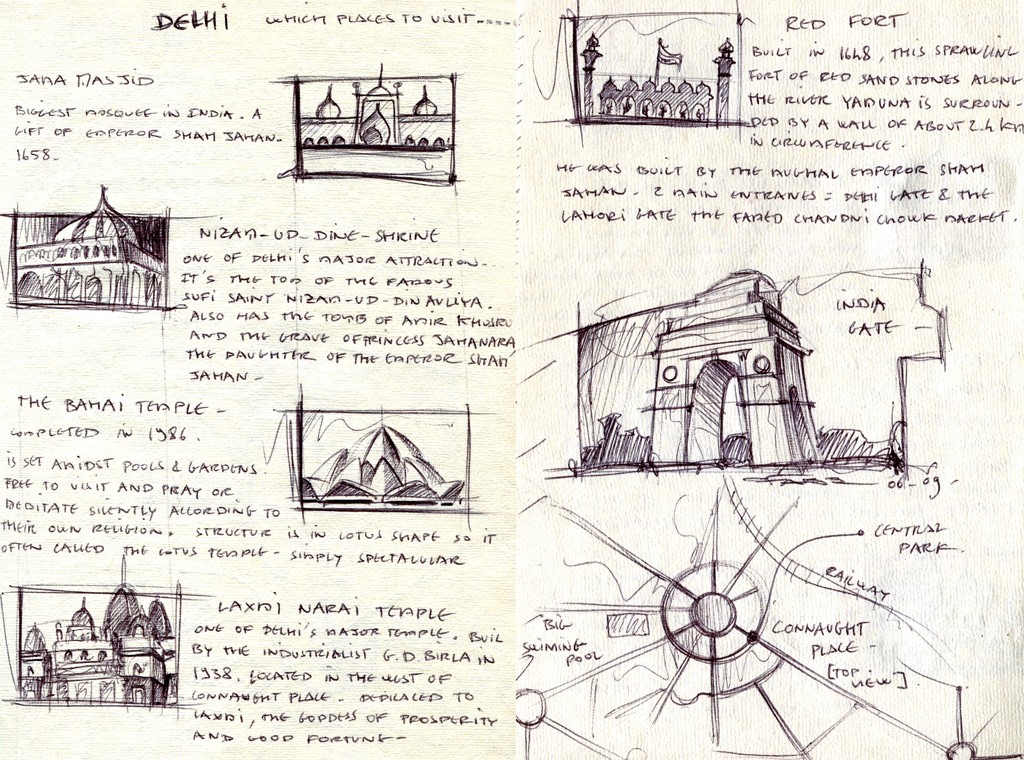 DELHI WHICH PLACES TO VISIT.....
JAMA MASJID
BIGGEST MOSQUEE IN INDIA. A
GIFT OF EMPEROR SHAH JAHAN.
1658.
NIZAM-UD-DINE-SHRINE
ONE OF DELHI'S MAJOR ATTRACTION.
IT'S THE TOM OF THE FAMOUS
SUFI SAINT NIZAM-UD-DIN AULIYA.
ALSO HAS THE TOMB OF AMIR KHUSRU
AND THE GRAVE OF PRINCESS JAHANARA
THE DAUGHTER OF THE EMPEROR SHAH
JAHAN-
THE BAHAI TEMPLE-
COMPLETED IN 1986.
IS SET AMIDST POOLS & GARDENS.
FREE TO VISIT AND PRAY OR
MEDITATE SILENTLY ACCORDING TO
THEIR OWN RELIGION. STRUCTUR IS IN LOTUS SHAPE SO IT
OFTEN CALLED THE LOTUS TEMPLE- SIMPLY SPECTALULAR
LAXMI NARAI TEMPLE
ONE OF DELHI'S MAJOR TEMPLE. BUIL
BY THE INDUSTRIALIST G.D. BIRLA IN
1938. LOCATED IN THE WEST OF
CONNAUGHT PLACE. DEDICACED TO
LAXMI, THE GODDESS OF PROSPERITY
AND GOOD FORTUNE-
RED FORT
BUILT IN 1648, THIS SPRAWLING
FORT OF RED SAND STONES ALONG
THE RIVER YAMUNA IS SURROUN-
DED BY A WALL OF ABOUT 2.4 KM
IN CIRCUMFERENCE.
HE WAS BUILT BY THE MUGHAL EMPEROR SHAH
JAHAN. 2 MAIN ENTRANES = DELHI GATE & THE
LAHORI GATE THE FAMED CHANDNI CHOWK MARKET.
INDIA
GATE -
06-09-
CENTRAL
PARK.
RAILWAY
BIG
SWIMING
POOL
CONNAUGHT
PLACE -
[TOP
VIEW].